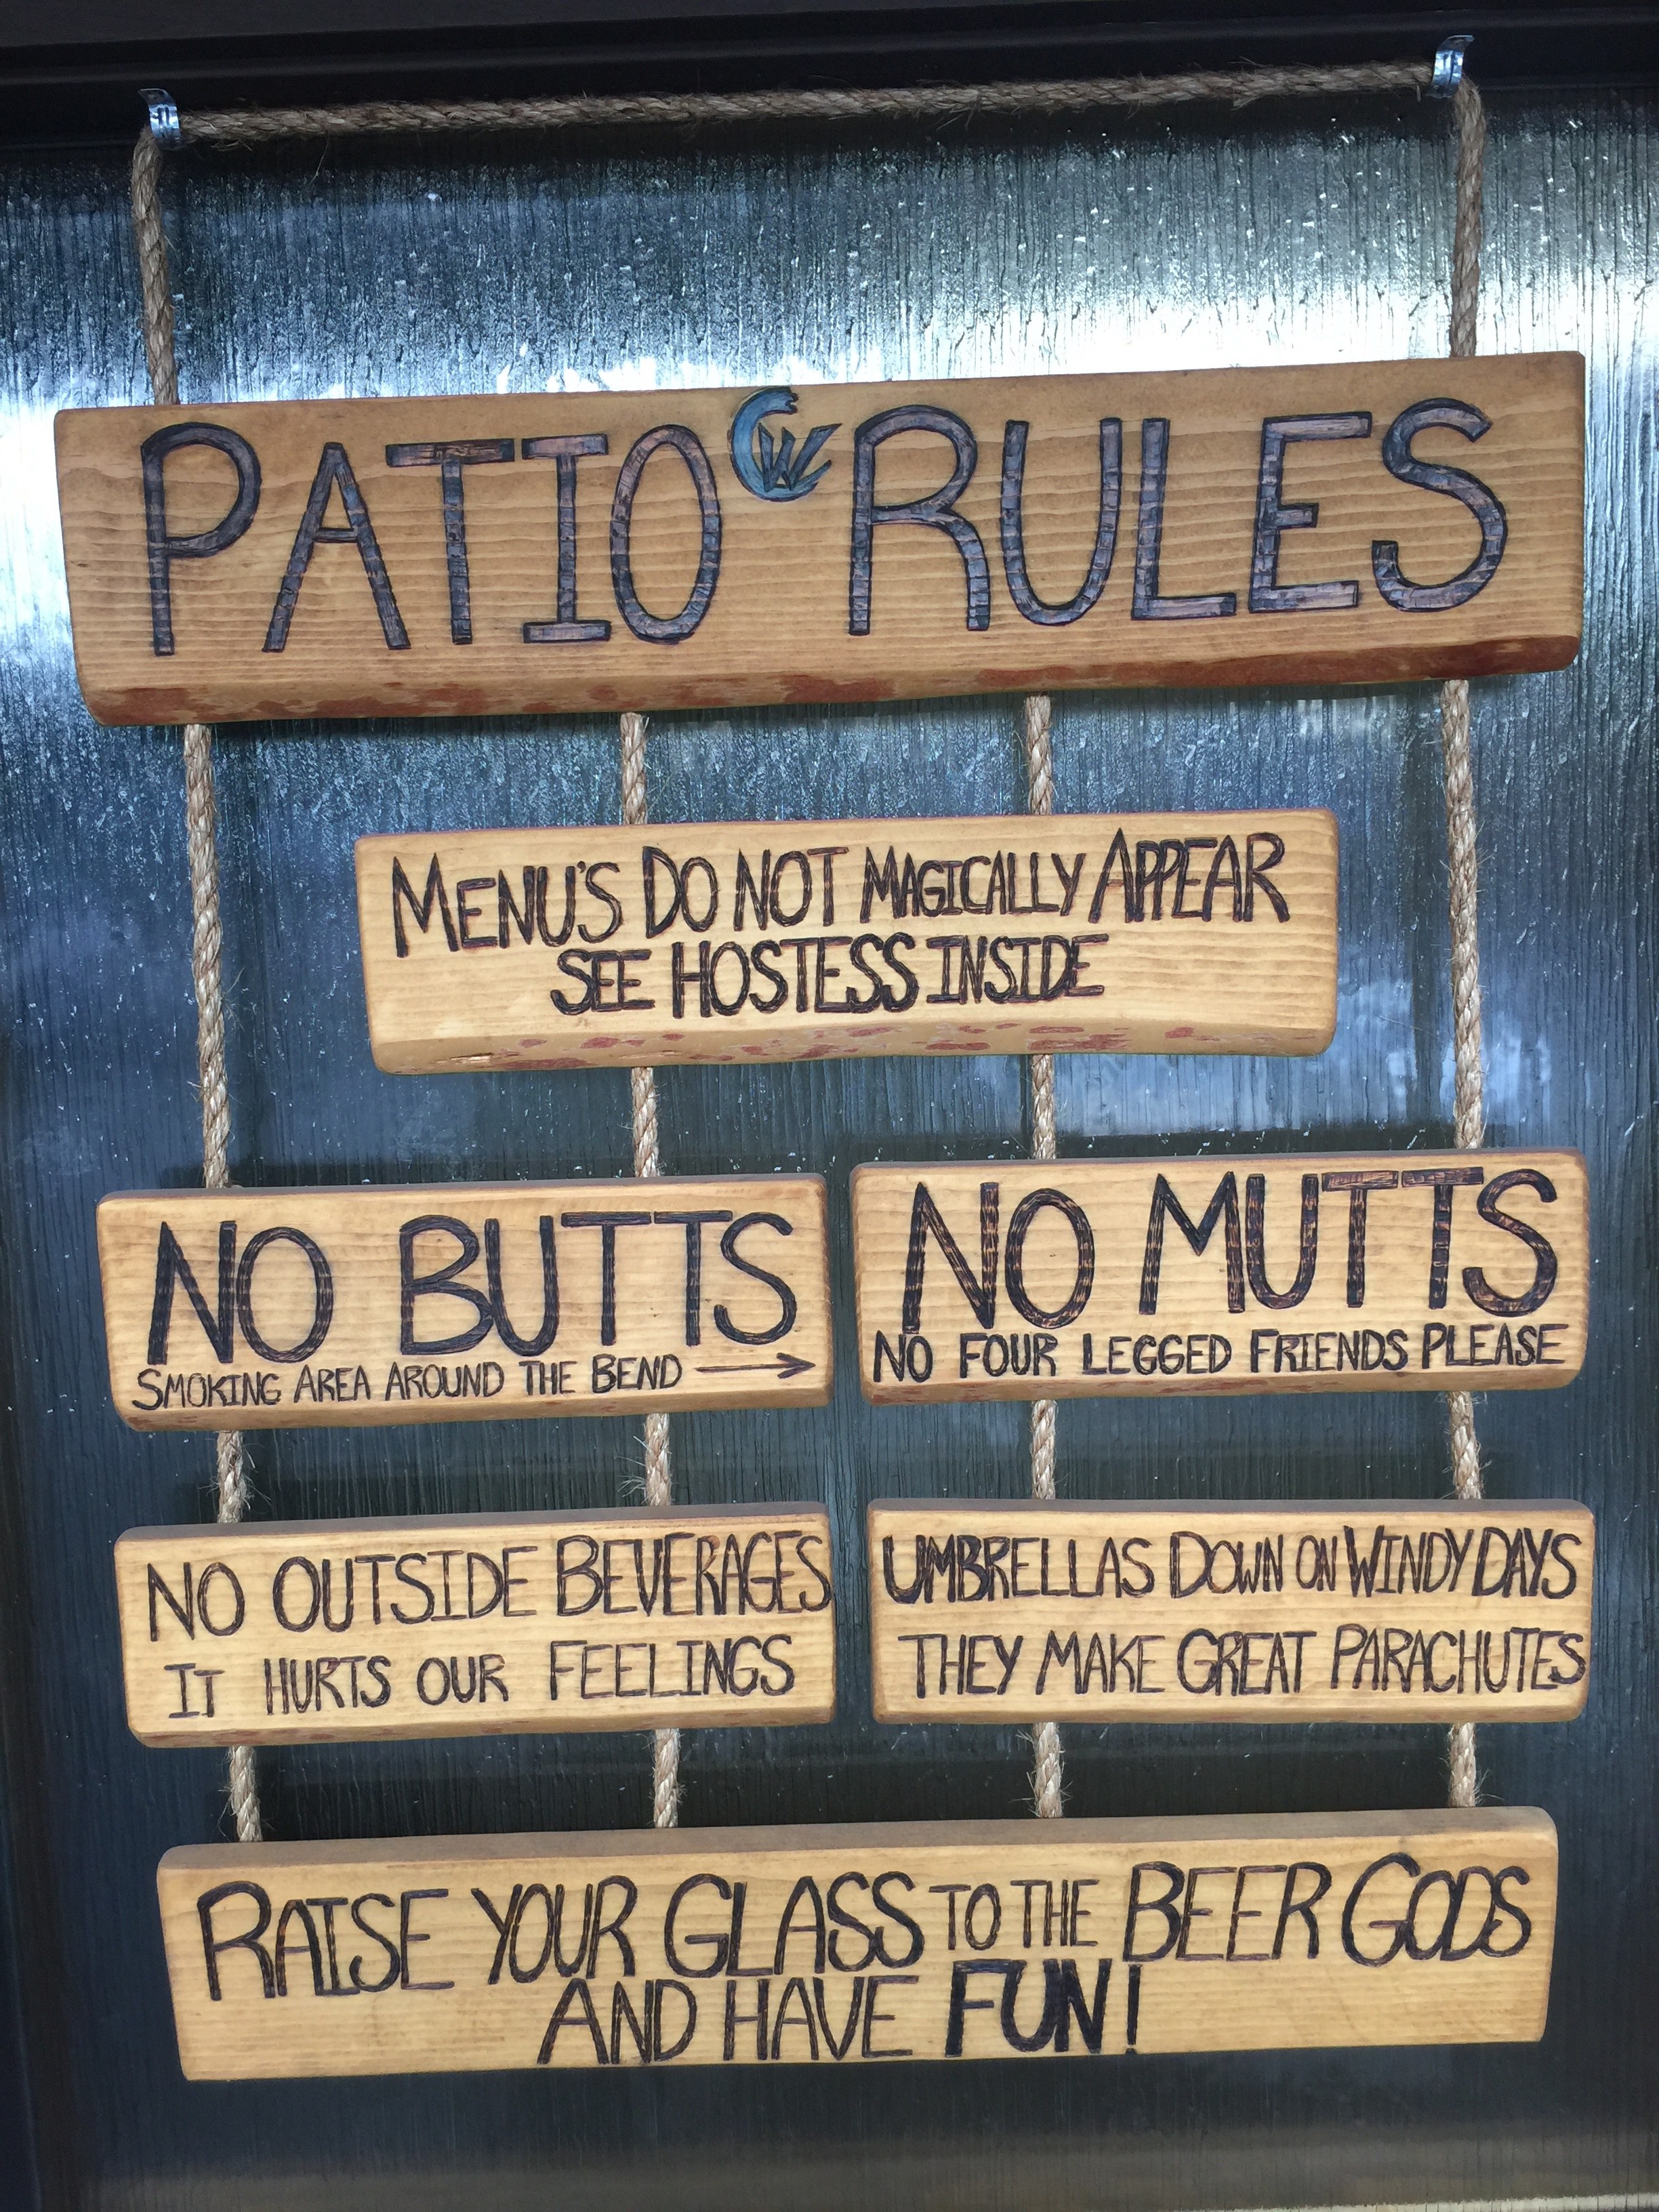 PATIO CW RULES
MENU'S DO NOT MAGICALLY APPEAR
SEE HOSTESS INSIDE
NO BUTTS
SMOKING AREA AROUND THE BEND →
NO MUTTS
NO FOUR LEGGED FRIENDS PLEASE
NO OUTSIDE BEVERAGES
IT HURTS OUR FEELINGS
UMBRELLAS DOWN ON WINDY DAYS
THEY MAKE GREAT PARACHUTES
RAISE YOUR GLASS TO THE BEER GODS
AND HAVE FUN!